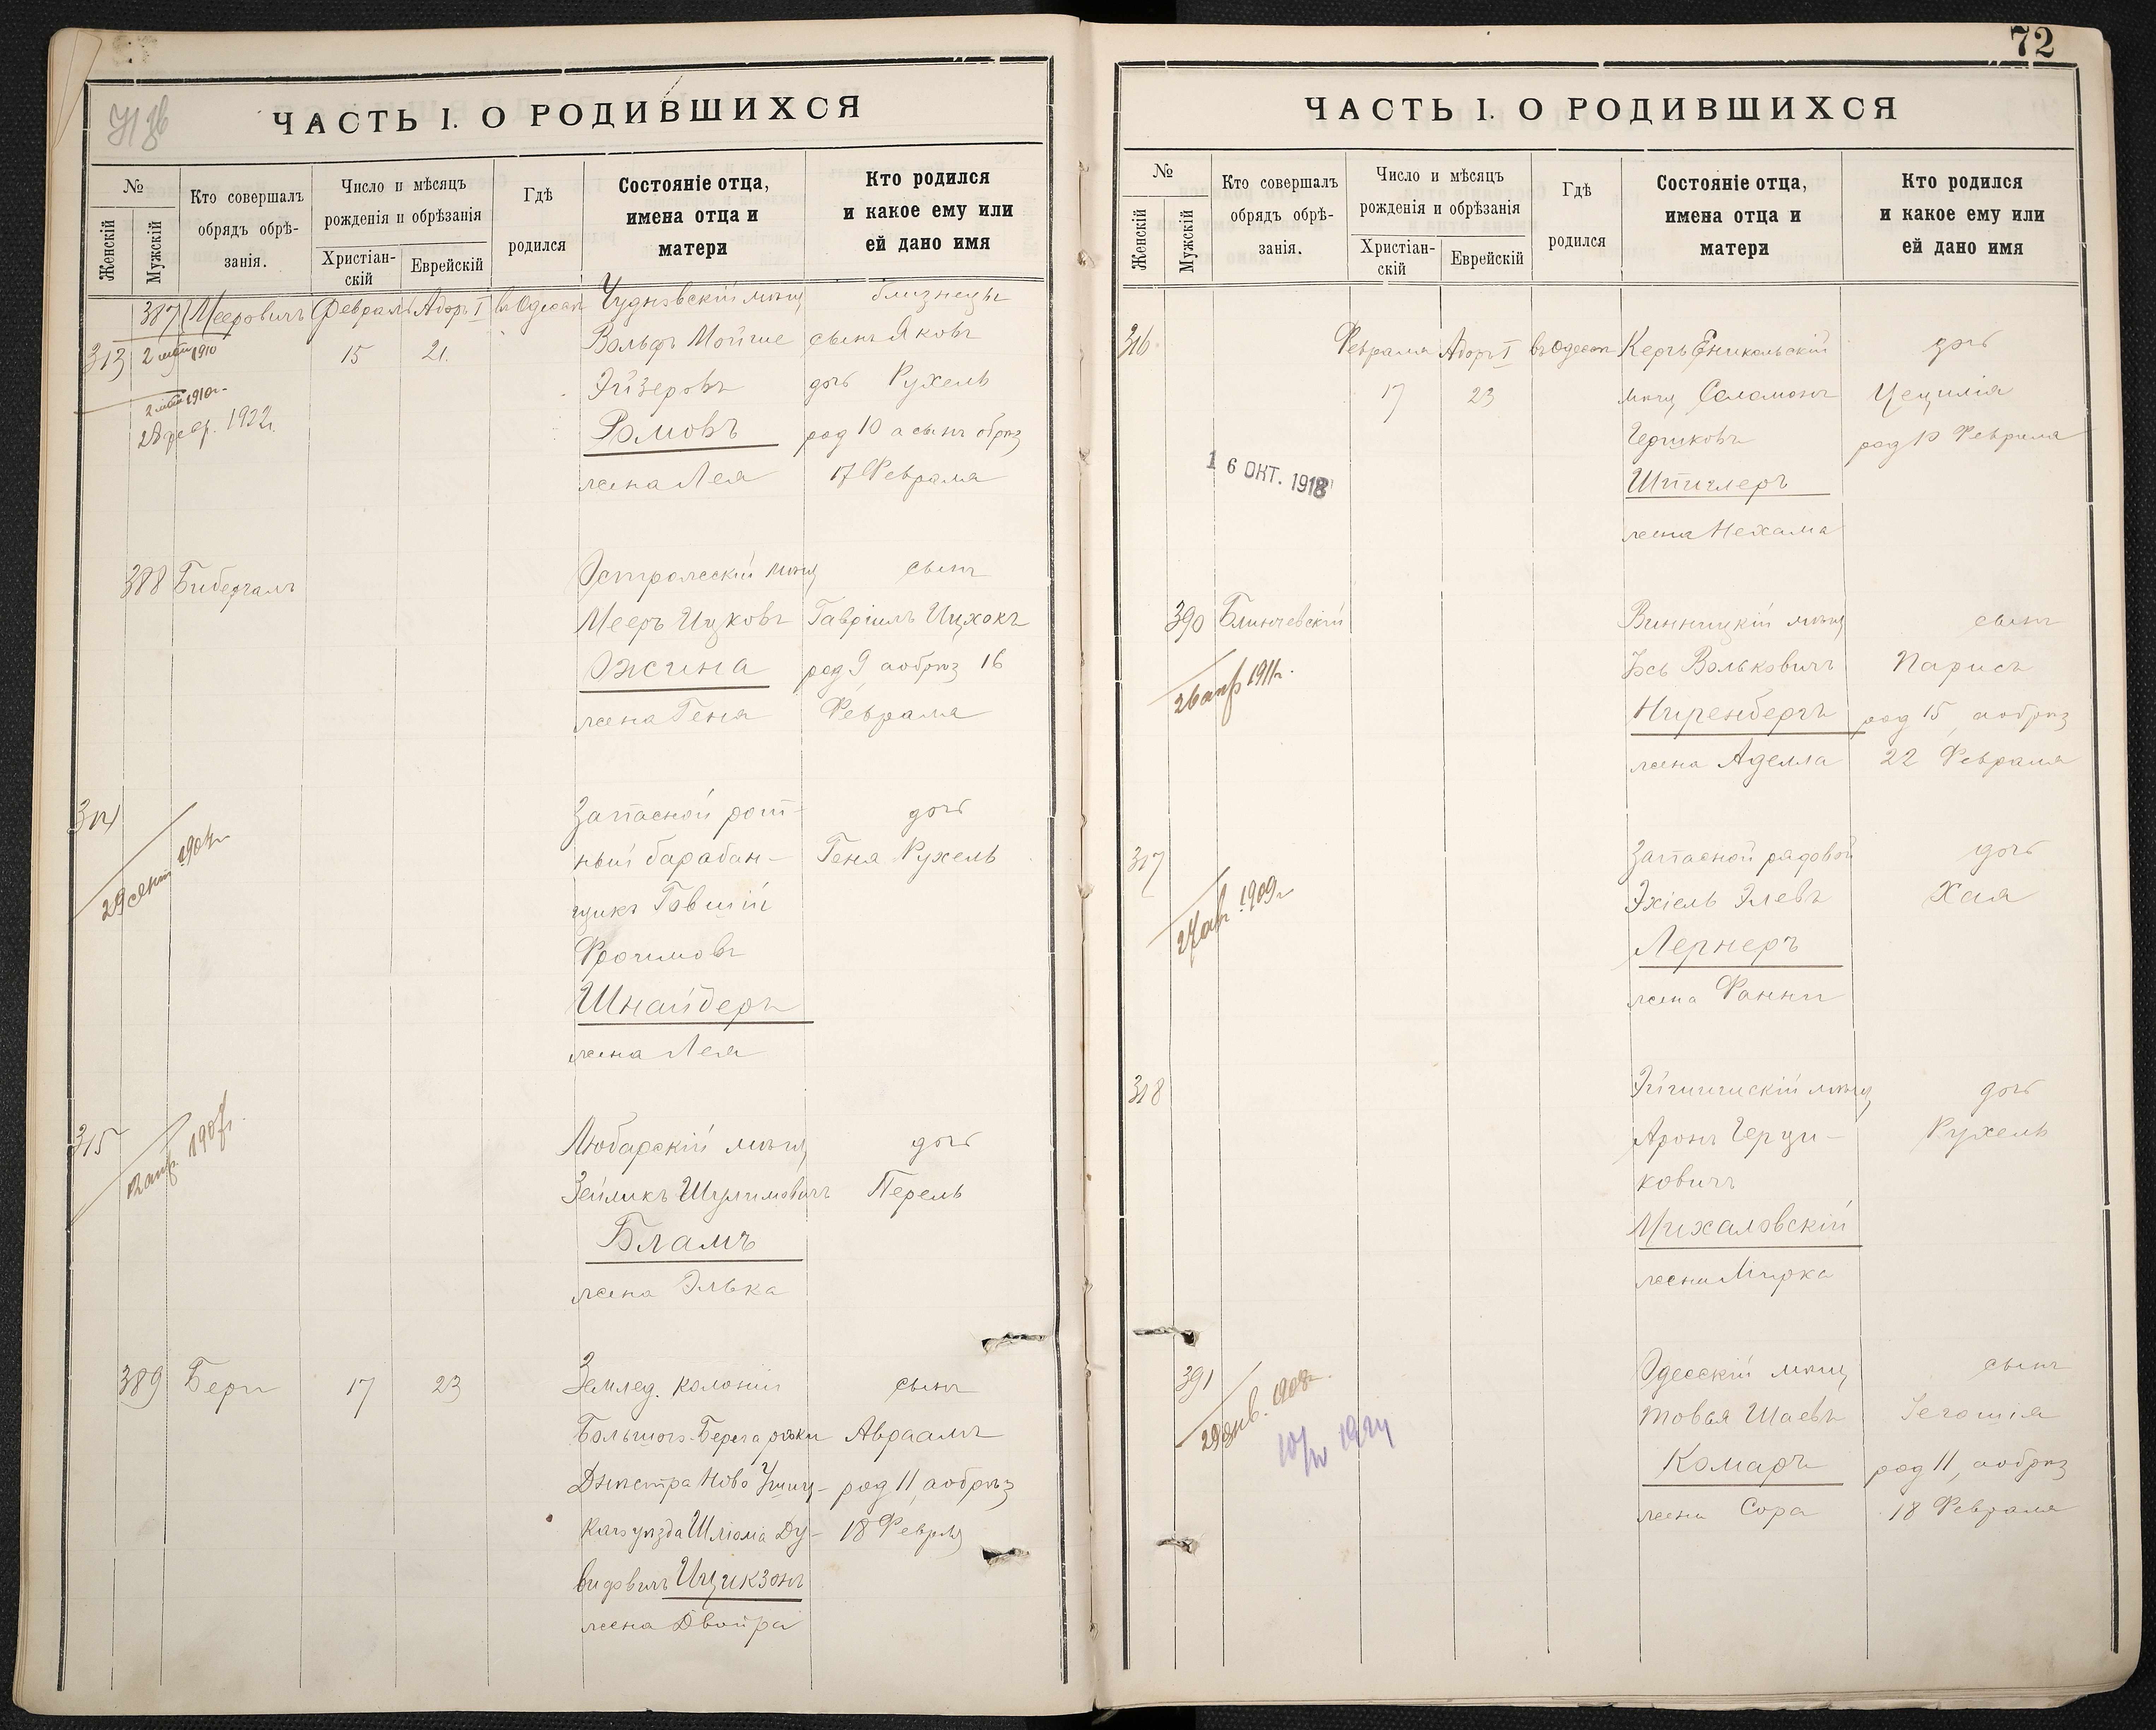 ЧАСТЬ I. О РОДИВШИХСЯ
№
Женскій
Мужскій
Кто совершалъ
обрядъ обрѣ-
занія.
Число и мѣсяцъ
рожденія и обрѣзанія
Христіан-
скій
Еврейскій
Гдѣ
родился
Состояніе отца,
имена отца и
матери
Кто родился
и какое ему или
ей дано имя
387 Мееровичъ Февраля Адоръ I въ Одессѣ Чудновскій мѣщ близнецы
313 2 мая 1910 15 21. Вольфъ Мойше сынъ Яковъ
Эйзеровъ дочь Рухель
2 мая 1910г.
28 февр. 1922г.
Ромовъ род 10 а сынъ обрѣз
жена Лея 17 Февраля
388 Бибергалъ Остропольскій мѣщ сынъ
Мееръ Ицковъ Гавріилъ Ицхокъ
Ожгина род 9 а обрѣз 16
жена Геня Февраля
314 Запасной рот-
дочь
ный барабан-
Геня Рухель
щикъ Говшій
Фроимовъ
Шнайдеръ
жена Лея
315 Любарскій мѣщ дочь
Зейликъ Шулимовичъ Перель
Бламъ
жена Элька
389 Беръ 17 23 Землед. колоніи сынъ
Большого Берега рѣки Авраамъ
Днѣстра Ново Ушиц- род 11, а обрѣз
каго уѣзда Шліома Ду- 18 Февраля
видовичъ Ицикзонъ
жена Двойра
72
ЧАСТЬ I. О РОДИВШИХСЯ
№
Женскій
Мужскій
Кто совершалъ
обрядъ обрѣ-
занія.
Число и мѣсяцъ
рожденія и обрѣзанія
Христіан-
скій
Еврейскій
Гдѣ
родился
Состояніе отца,
имена отца и
матери
Кто родился
и какое ему или
ей дано имя
316 Февраля Адоръ I въ Одессѣ Керчь Еникольскій дочь
17 23 мѣщ Соломонъ Цецилія
род 10 Февраля
16 ОКТ. 1918
Шпиглеръ
жена Нехама
390 Блинчевскій Винницкій мѣщ сынъ
Іось Вольковичъ Парисъ
26 апр 1911г.
Ниренбергъ род 15, а обрѣз
жена Аделла 22 Февраля
317 Запасной рядовой дочь
Эхіель Элевъ Хая
1909г
Лернеръ
жена Фанни
318 мѣщ дочь
Аронъ Герци-
Рухель
ковичъ
Михаловскій
жена Мирка
391 Одесскій мѣщ сынъ
29 янв. 1908г.
Товья Шаевъ Іегошія
10/IV 1924
Комаръ род 11, а обрѣз
жена Сора 18 Февраля